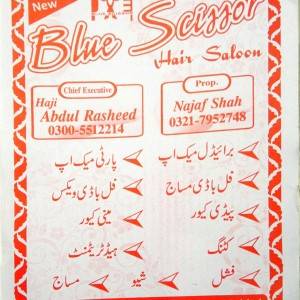 New
Blue Scissor
Hair Saloon
Chief Executive
Haji
Abdul Rasheed
0300-5512214
Prop.
Najaf Shah
0321-7952748
برائیڈل میک اپ
پارٹی میک اپ
فل باڈی مساج
فل باڈی ویکس
پیڈی کیور
مینی کیور
کٹنگ
ہیڈ ٹریٹمنٹ
فشل
شیو
مساج